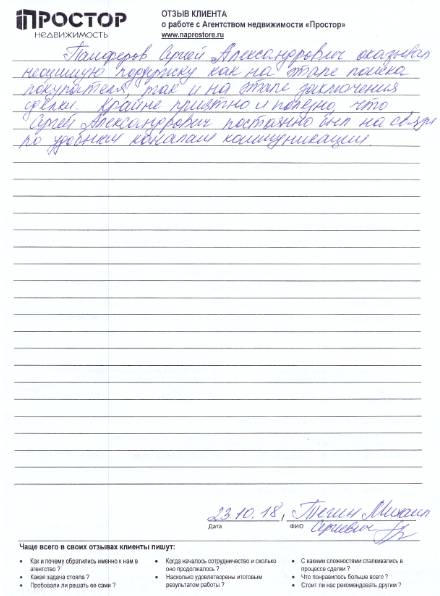 ПРОСТОР
НЕДВИЖИМОСТЬ
ОТЗЫВ КЛИЕНТА
о работе с Агентством недвижимости «Простор»
www.naprostore.ru
Панферов Сергей Александрович оказывал
неоценимую поддержку как на этапе поиска
покупателя, так и на этапе заключения
сделки. Крайне приятно и полезно, что
Сергей Александрович постоянно был на связи
по удобным каналам коммуникации
23.10.18, Михаил
Сергеевич
Дата ФИО
Чаще всего в своих отзывах клиенты пишут:
• Как и почему обратились именно к нам в агентство ?
• Какая задача стояла ?
• Пробовали ли решать ее сами ?
• Когда началось сотрудничество и сколько оно продолжалось ?
• Насколько удовлетворены итоговым результатом работы ?
• С какими сложностями сталкивались в процессе сделки ?
• Что понравилось больше всего ?
• Стоит ли нас рекомендовать другим ?